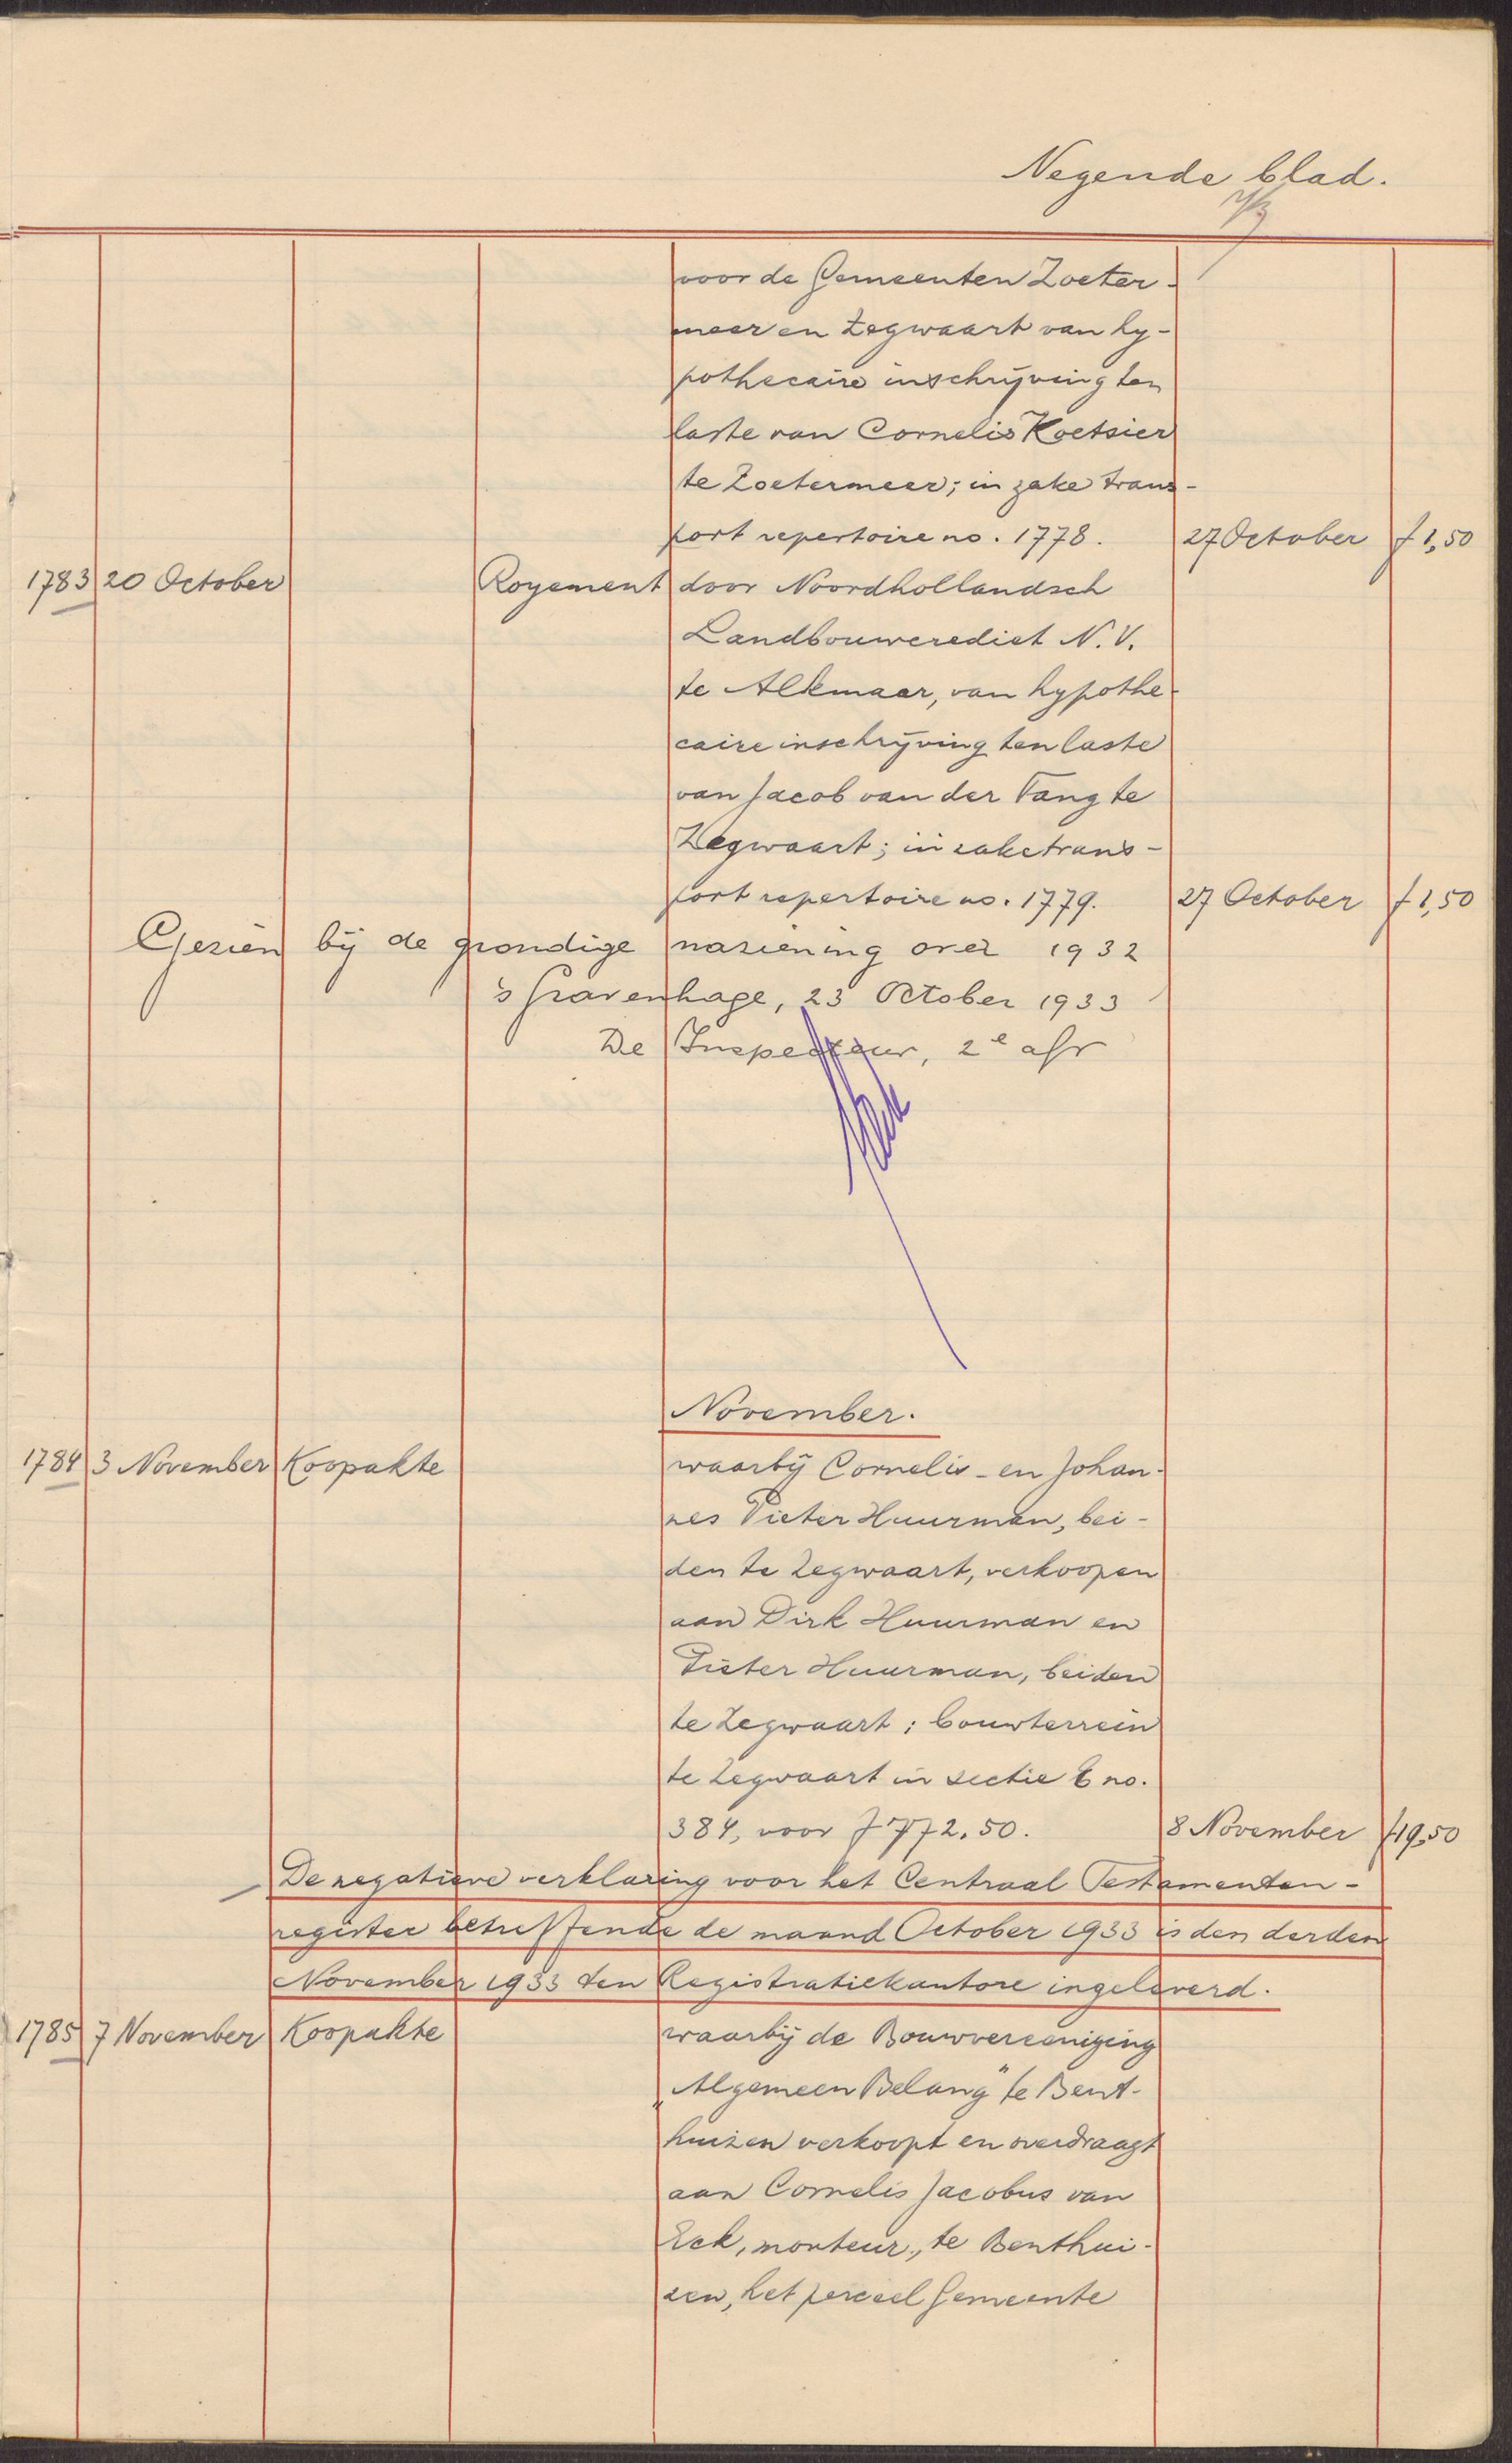 Negende blad.
voor de Gemeenten Zoeter-
meer en Zegwaart van hy-
pothecaire inschrijving ten
laste van Cornelis Koetsier
te Zoetermeer; in zake trans-
port repertoire no. 1778. 27 October f 1,50
1783 20 October Royement door Noordhollandsch
Landbouwcrediet N.V.
te Alkmaar, van hypothe-
caire inschrijving ten laste
van Jacob van der Tang te
Zegwaart; in zake trans-
port repertoire no. 1779. 27 October f 1,50
Gezien bij de grondige naziening over 1932
's Gravenhage, 23 October 1933
De Inspecteur, 2e afd
November.
1784 3 November Koopakte waarbij Cornelis- en Johan-
nes Pieter Huurman, bei-
den te Zegwaart, verkoopen
aan Dirk Huurman en
Pieter Huurman, beiden
te Zegwaart; bouwterrein
te Zegwaart in sectie no.
384, voor f 772.50. 8 November f 19,50
De negatieve verklaring voor het Centraal Testamenten-
register betreffende de maand October 1933 is den derden
November 1933 ten Registratiekantore ingeleverd.
1785 7 November Koopakte waarbij de Bouwvereeniging
„Algemeen Belang" te Bent-
huizen verkoopt en overdraagt
aan Cornelis Jacobus van
Eck, monteur, te Benthui-
zen, het perceel Gemeente